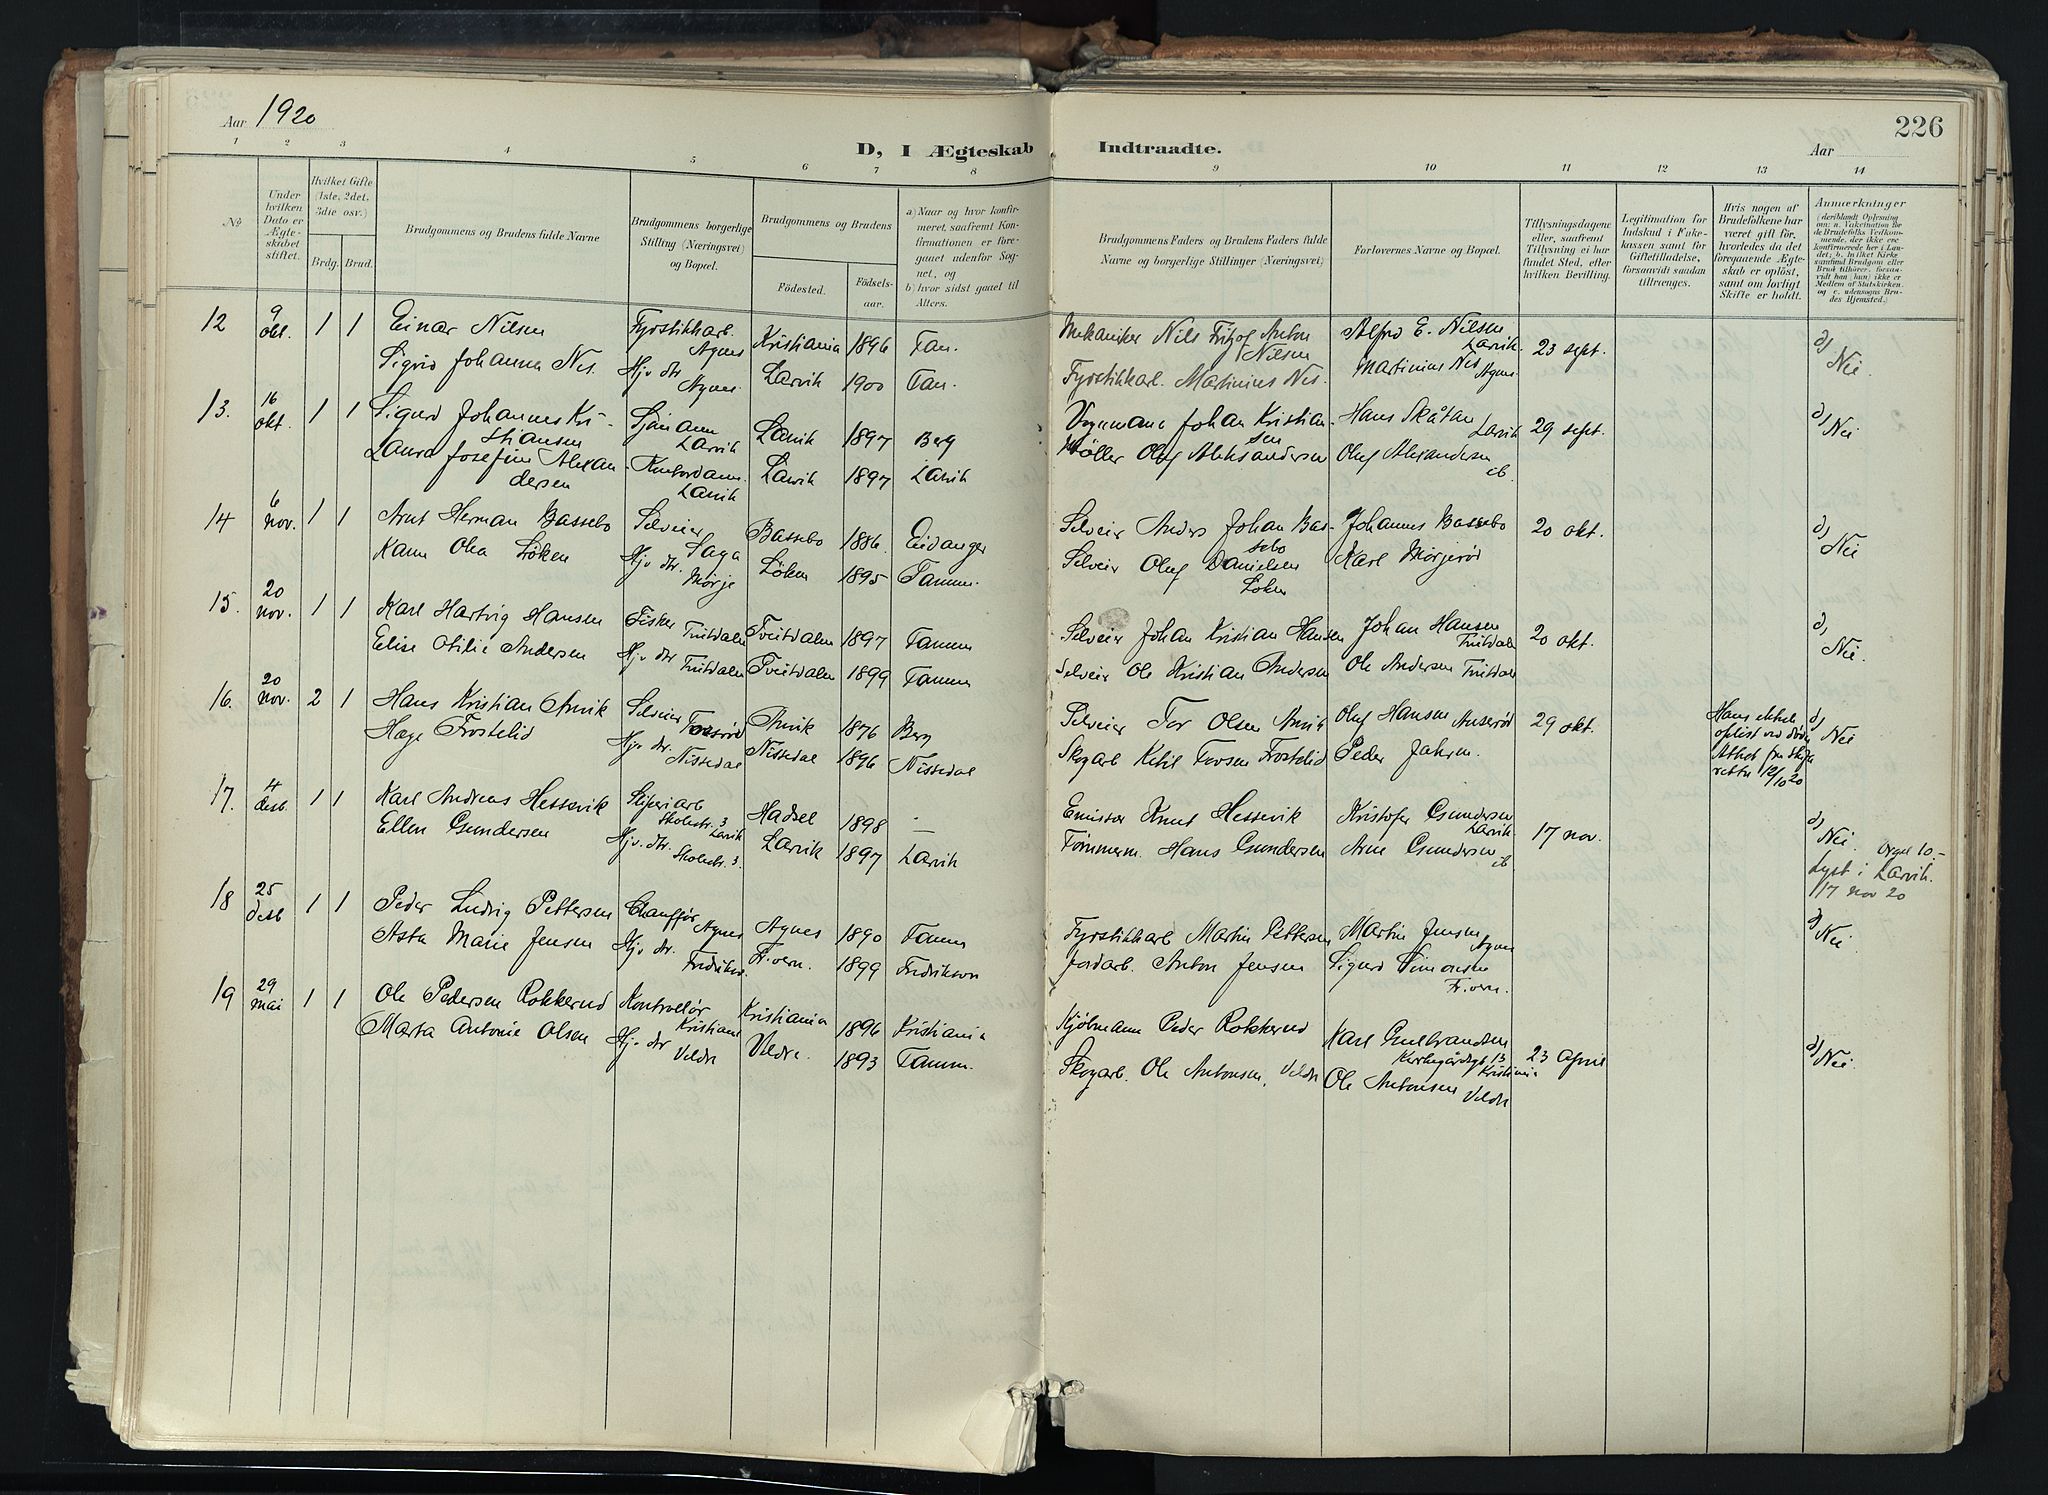 Aar 1920
D, I Ægteskab Indtraadte.
226
Aar
1 2 3 4 5 6 7 8 9 10 11 12 13 14
№
Under hvilken Dato er Ægteskabet stiftet.
Hvilket Gifte (1ste, 2det, 3die osv.)
Brdg. Brud.
Brudgommens og Brudens fulde Navne
Brudgommens borgerlige Stilling (Næringsvei) og Bopæl.
Brudgommens og Brudens
Fødested. Fødselsaar.
a) Naar og hvor konfirmeret, saafremt Konfirmationen er foregaaet udenfor Sognet, og
b) hvor sidst gaaet til Alters.
Brudgommens Faders og Brudens Faders fulde Navne og borgerlige Stillinger (Næringsvei)
Forlovernes Navne og Bopæl.
Tillysningsdagene eller, saafremt Tillysning ei har fundet Sted, efter hvilken Bevilling.
Legitimation for Indskud i Enkekassen samt for Giftetilladelse, forsaavidt saadan tiltrænges.
Hvis nogen af Brudefolkene har været gift før, hvorledes da det foregaaende Ægteskab er opløst, samt om lovligt Skifte er holdt.
Anmærkninger
12 9 okt. 1 1 Einar Nilsen Fyrstikkarb. Agnes Kristiania 1896 Tan. Mekaniker Nils Fritjof Anton Nilsen Alfred E. Nilsen Larvik 23 sept. d) Nei
Sigrid Johanna Nes. Hj.v. dtr. Agnes. Larvik 1900 Tan. Fyrstikkarb. Martinius Nes. Martinius Nes Agnes
13. 16 okt. 1 1 Sigurd Johannes Kristiansen Sjömann Larvik Larvik 1897 Berg Johan Kristiansen Hans Skåtan Larvik 29 sept. d) Nei
Laura Josefine Alexandersen Kontordame. Larvik Larvik 1897 Larvik Møller Oluf Aleksandersen Oluf Alexandersen ib.
14 6 nov. 1 1 Arnt Herman Bassebo Selveier Saga Bassebo 1886. Eidanger Selveier Anders Johan Bassebo Johannes Bassebo 20 okt. d) Nei
Karen Olea Löken Hj.v. dtr. Mörje Löken 1895 Tanum. Selveier Oluf Danielsen Löken Karl Mörjeröd
15. 20 nov. 1 1 Karl Hartvig Hansen Fisker Tveitdalen Tveitdalen 1897 Tanum Selveier Johan Kristian Hansen Johan Hansen Tveitdalen 20 okt. d) Nei.
Elise Otilie Andersen Hj.v. dtr Tveitdalen Tveitdalen 1899 Tanum Selveier Ole Kristian Andersen Ole Andersen Tveitdalen
16. 20 nov. 2 1 Hans Kristian Amvik Selveier Amvik 1876 Berg Selveier Tor Olsen Amvik Oluf Hansen Anseröd 29 okt. Hans ekteskap oplöst ved död. Attest fra skifteretten 12/10 20 d) Nei
Hæge Frostelid Hj.v. dtr. Nissedal Nissedal 1896 Nissedal Skogarb Ketil Tovsen Frostelid Peder Jahren.
17. 4 desb 1 1 Karl Andreas Hessevik Sliperiarb Skolestr. 3 Larvik Hadsel 1898 — Emissær Knut Hessevik Kristofer Gundersen Larvik 17 nov. d) Nei. Orgel 10.-
Ellen Gundersen Hj.v. dtr. Skolestr. 3. Larvik 1897 Larvik Tömmerm. Hans Gundersen Arne Gundersen ib Lyst i Larvik. 17 nov 20
18 25 desb 1 1 Peder Ludvig Pettersen Chauffør Agnes Agnes 1890 Tanum Fyrstikkarb Martin Pettersen Martin Jensen Agnes d) Nei.
Asta Marie Jensen Hj.v. dtr. Fredriksv. Fr.vern. 1899 Fredriksvern Jordarb. Anton Jensen Sigurd Simonsen Fr.vern.
19 29 mai 1 1 Ole Pedersen Rokkerud Kontrollör Kristiania Kristiania 1896 Kristiania Kjöbmann Peder Rokkerud Karl Gulbrandsen Kirkegårdsgt 13 Kristiania 23 april d) Nei.
Marta Antonie Olsen Hj.v. dtr Veldre Veldre. 1893 Tanum. Skogarb. Ole Antonsen, Veldre Ole Antonsen Veldre